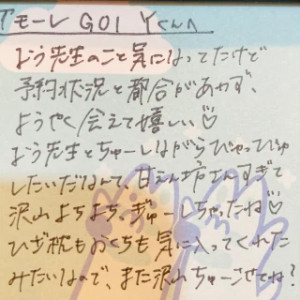 アモーレ GOI Yくんへ
よう先生のこと気になってたけど
予約状況と都合があわず、
ようやく会えて嬉しい♡
よう先生とちゅーしながらぴゅっぴゅ
したいだなんて、甘えん坊さんすぎて
沢山よちよち、ぎゅーしちゃったね♡
ひざ枕もおくちも気に入ってくれた
みたいなので、また沢山ちゅーしてね?